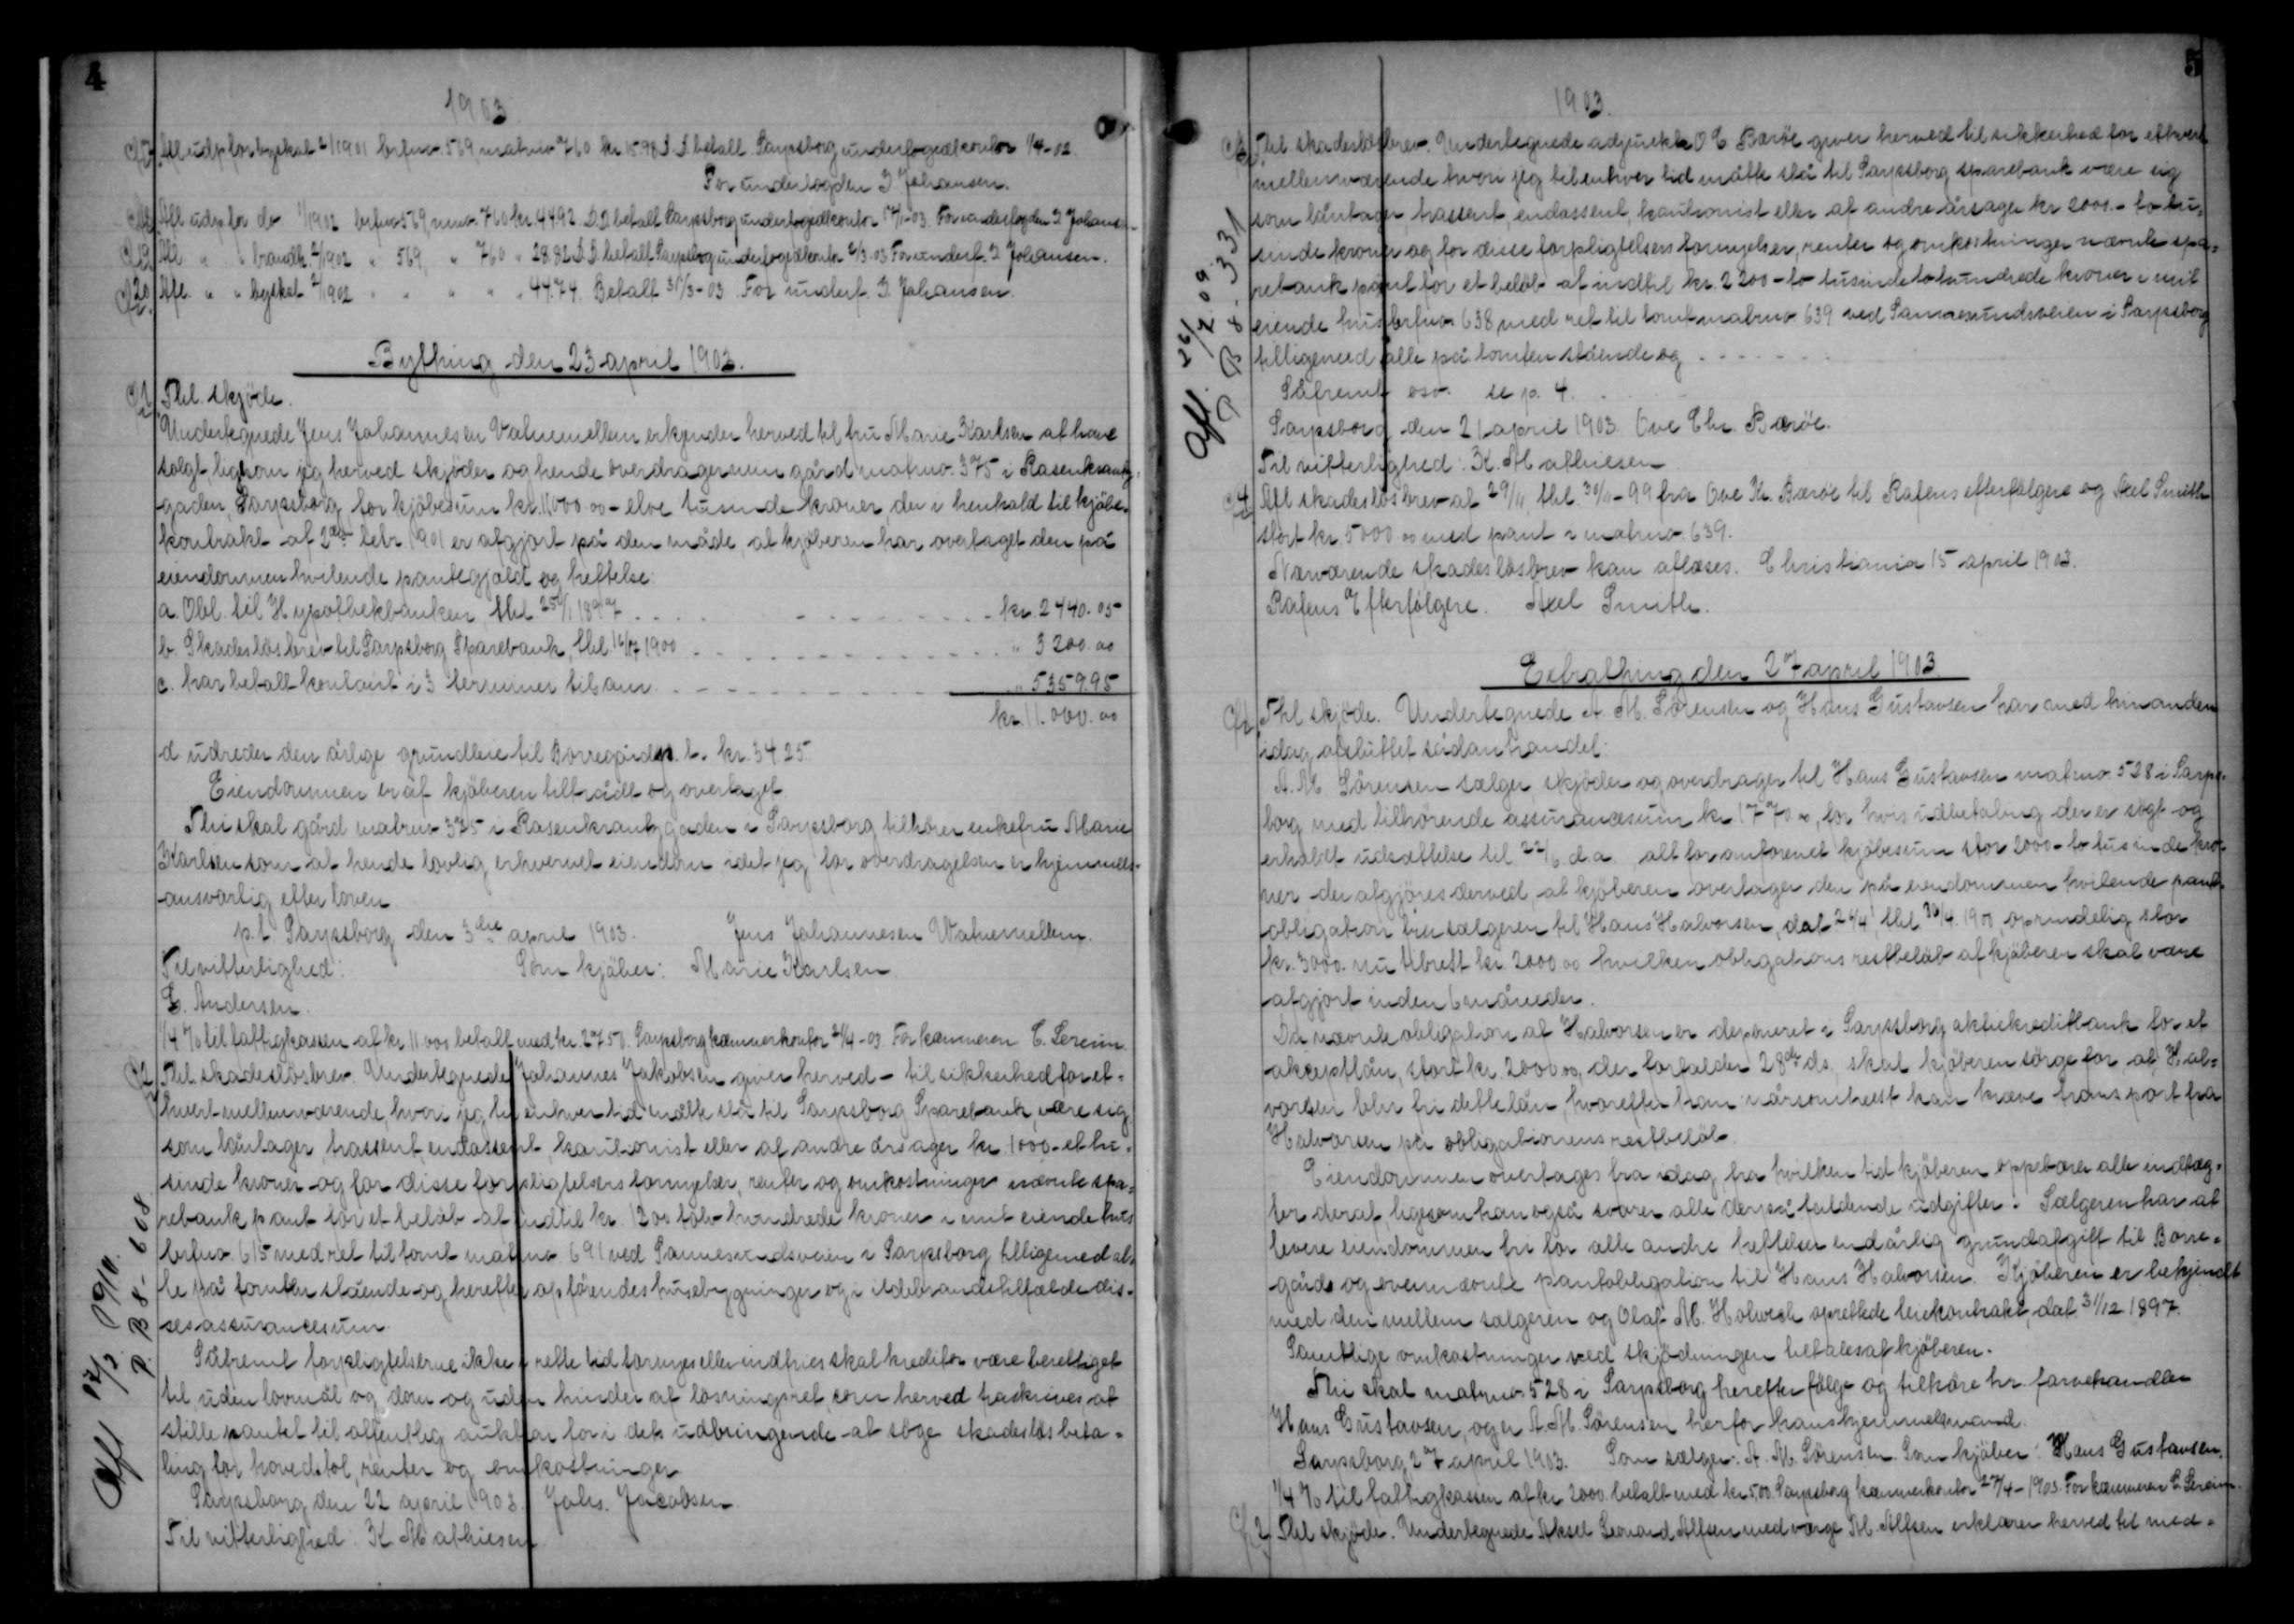 4
1903.
Afl. udp. for byskat 2/1901 brfno. 569 matrno 760 kr. 15.98 D.D. betalt. Sarpsborg underfogedkontor 1/4-02.
For underfogden J. Johansen.
Afl. udp. for do 1/1902 brfno 569 mno. 760 kr. 44.92 D.D. betalt Sarpsborg underfogedkontor 17/1-03. For underfogden J. Johansen.
Afl. " " brandk. 2/1902 " 569, " 760 " 28.82 D.D. betalt Sarpsborg underfogedkontor 2/3.03 For underf. J. Johansen.
20. Afl. " " byskat 2/1902 " " " " 44.74. Betalt 31/3-03. For underf. J. Johansen.
Bything den 23 april 1903.
1. Thl. skjöde.
Undertegnede Jens Johannesen Vatnemellem erkjender herved til fru Marie Karlsen at have
solgt, ligesom jeg herved skjöder og hende overdrager min gård matrno. 375 i Rosenkrantz-
gaden, Sarpsborg for kjöbesum kr. 11,000.00 - elve tusinde kroner der i henhold til kjöbe-
kontrakt af 2den febr. 1901 er afgjort på den måde at kjöberen har overtaget den på
eiendommen hvilende pantegjæld og heftelse:
a. Obl. til Hypothekbanken, thl. 25/1 1897 kr. 2440.05
b. Skadeslösbrev til Sarpsborg Sparebank, thl. 16/7 1900 " 3200.00
c. har betalt kontant i 3 terminer tilsam. " 5359.95
kr. 11.000.00
d. udreder den årlige grundleie til Borregård p.t. kr. 34.25
Eiendommen er af kjöberen tiltrådt og overtaget.
Thi skal gård matrno 375 i Rosenkrantzgaden i Sarpsborg tilhöre enkefru Marie
Karlsen som af hende lovlig erhvervet eiendom idet jeg for overdragelsen er hjemmels-
ansvarlig efter loven.
p.t. Sarpsborg den 3die april 1903. Jens Johannesen Watnemellem.
Til vitterlighed: Som kjöber: Marie Karlsen.
L. Andersen.
1/4 % til fattigkassen af kr. 11.000 betalt med kr. 27.50. Sarpsborg kæmnerkontor 21/4-03. For kæmneren C. Sereim.
2. Thl. skadeslösbrev. Undertegnede Johannes Jakobsen giver herved - til sikkerhed for et-
hvert mellemværende, hvori jeg til enhver tid måtte stå til Sarpsborg Sparebank, være sig
som låntager, trassent, endossent, kautionist eller af andre årsager kr. 1000 - et tu-
sinde kroner og for disse forpligtelsers fornyelser, renter og omkostninger nævnte spa-
rebank pant for et belöb af indtil kr. 1200 tolv hundrede kroner i mit eiende hus
brfno. 615 med ret til tomt matrno. 691 ved Sannesundsveien i Sarpsborg tilligemed al-
le på tomten stående og herefter opförendes husebygninger og i ildebrandstilfælde dis-
ses assurancesum.
Såfremt forpligtelserne ikke i rette tid fornyes eller indfries skal kreditor være berettiget
til uden lovmål og dom og uden hinder af lösningsret som herved fraskrives at
stille pantet til offentlig auktion for i dets udbringende at söge skadeslös beta-
ling for hovedstol, renter og omkostninger.
Sarpsborg den 22 april 1903. Johs. Jacobsen.
Til vitterlighed: K. Mathiesen.
Afl 17/2 1911.
P. B 8 - 608
5
1903.
3. Thl. skadeslösbrev. Undertegnede adjunkt O C Bæröe giver herved til sikkerhed for ethvert
mellemværende hvori jeg til enhver tid måtte stå til Sarpsborg sparebank være sig
som låntager, trassent, endossent, kautionist eller af andre årsager kr. 2000.- to tu-
sinde kroner og for disse forpligtelsers fornyelser, renter og omkostninger nævnte spa-
rebank pant for et belöb af indtil kr. 2200 - to tusinde tohundrede kroner i mit
eiende hus brfno. 638 med ret til tomt matrno 639 ved Sannesundsveien i Sarpsborg
tilligemed alle på tomten stående og
Såfremt osv. se p. 4.
Sarpsborg den 21 april 1903. Ove Chr. Bæröe.
Til vitterlighed: K. Mathiesen.
Afl 26/2.09
P B 8. 331
4. Afl. skadeslösbrev af 29/11, thl. 30/11-99 fra Ove Kr. Bæröe til Rafens efterfölgere og Axel Smith
stort kr. 5000.00 med pant i matrno. 639.
Nærværende skadeslösbrev kan aflæses. Christiania 15 april 1903.
Rafens Efterfölgere. Axel Smith.
Extrathing den 27 april 1903.
1. Thl. skjöde. Undertegnede A. M. Sörensen og Hans Gustavsen har med hinanden
idag afsluttet sådan handel:
A. M. Sörensen sælger, skjöder og overdrager til Hans Gustavsen matrno. 528 i Sarps-
borg med tilhörende assurancesum kr. 1770.00, for hvis udbetaling der er sögt og
erholdt udsættelse til 22/6 d.a. alt for omforenet kjöbesum stor 2000 - to tusinde kro-
ner der afgjöres derved, at kjöberen overtager den på eiendommen hvilende pant-
obligation fra sælgeren til Hans Halvorsen, dat. 26/4 thl. 30/4 1900 oprindelig stor
kr. 3000. nu tilrest kr. 2000.00 hvilken obligations restbelöb af kjöberen skal være
afgjort inden 6 måneder.
Da nævnte obligation af Halvorsen er deponeret i Sarpsborg aktiekreditbank for et
akceptlån, stort kr. 2000.00, der forfalder 28de ds. skal kjöberen sörge for, at Hal-
vorsen blir fri dette lån, hvorefter han nårsomhelst kan kræve transport fra
Halvorsen på obligationens restbelöb.
Eiendommen overtages fra idag fra hvilken tid kjöberen oppebærer alle indtæg-
ter deraf, ligesom han også svarer alle derpå faldende udgifter. Sælgeren har at
levere eiendommen fri for alle andre heftelser end årlig grundafgift til Borre-
gård og ovennævnte pantobligation til Hans Halvorsen. Kjöberen er bekjendt
med den mellem sælgeren og Olaf M. Holwech oprettede leiekontrakt, dat. 31/12 1897.
Samtlige omkostninger ved skjödningen betales af kjöberen.
Thi skal matrno. 528 i Sarpsborg herefter fölge og tilhöre hr. farvehandler
Hans Gustavsen, og er A. M. Sörensen herfor hans hjemmelsmand.
Sarpsborg 27 april 1903. Som sælger: A. M. Sörensen. Som kjöber: Hans Gustavsen.
1/4 % til fattigkassen af kr. 2000. betalt med kr. 5.00. Sarpsborg kæmnerkontor 27/4-1903. For kæmneren C. Sereim.
2. Thl. skjöde. Undertegnede Aksel Leonard Alfsen med værge M. Alfsen erklærer herved til med-